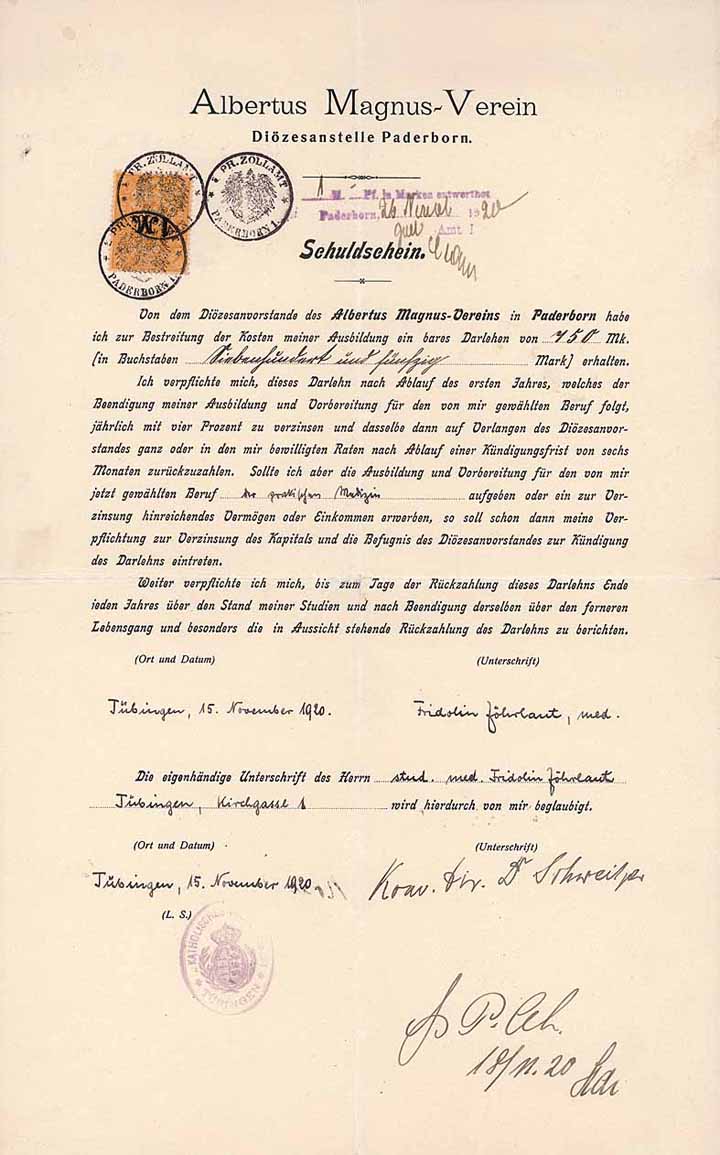 Albertus Magnus-Verein
Diözesanstelle Paderborn.
PR. ZOLLAMT
PADERBORN I.
PR. ZOLLAMT
PADERBORN I.
PADERBORN I.
1 M. Pf. in Marken entwertet
Paderborn, 26 1920
Amt I
Schuldschein.
Von dem Diözesanvorstande des Albertus Magnus-Vereins in Paderborn habe
ich zur Bestreitung der Kosten meiner Ausbildung ein bares Darlehen von 750 Mk.
(in Buchstaben Siebenhundert und fünfzig Mark) erhalten.
Ich verpflichte mich, dieses Darlehn nach Ablauf des ersten Jahres, welches der
Beendigung meiner Ausbildung und Vorbereitung für den von mir gewählten Beruf folgt,
jährlich mit vier Prozent zu verzinsen und dasselbe dann auf Verlangen des Diözesanvor-
standes ganz oder in den mir bewilligten Raten nach Ablauf einer Kündigungsfrist von sechs
Monaten zurückzuzahlen. Sollte ich aber die Ausbildung und Vorbereitung für den von mir
jetzt gewählten Beruf der praktischen Medizin aufgeben oder ein zur Ver-
zinsung hinreichendes Vermögen oder Einkommen erwerben, so soll schon dann meine Ver-
pflichtung zur Verzinsung des Kapitals und die Befugnis des Diözesanvorstandes zur Kündigung
des Darlehns eintreten.
Weiter verpflichte ich mich, bis zum Tage der Rückzahlung dieses Darlehns Ende
ieden Jahres über den Stand meiner Studien und nach Beendigung derselben über den ferneren
Lebensgang und besonders die in Aussicht stehende Rückzahlung des Darlehns zu berichten.
(Ort und Datum) (Unterschrift)
Tübingen, 15. November 1920. Fridolin Jöhrlaut, med.
Die eigenhändige Unterschrift des Herrn stud. med. Fridolin Jöhrlaut
Tübingen, Kirchgasse 1 wird hierdurch von mir beglaubigt.
(Ort und Datum) (Unterschrift)
Tübingen, 15. November 1920 Konv. Dir. Dr Schweitzer
(L. S.)
KATHOLISCHES
TÜBINGEN
18/11.20